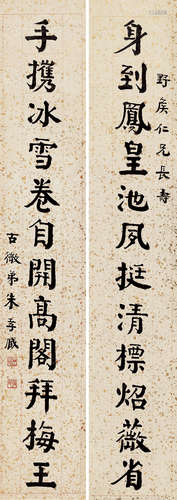 野矦仁兄長壽
身到鳳皇池夙挺清標炤薇省
手攜冰雪卷自開高閣拜梅王
古徵弟朱孝臧